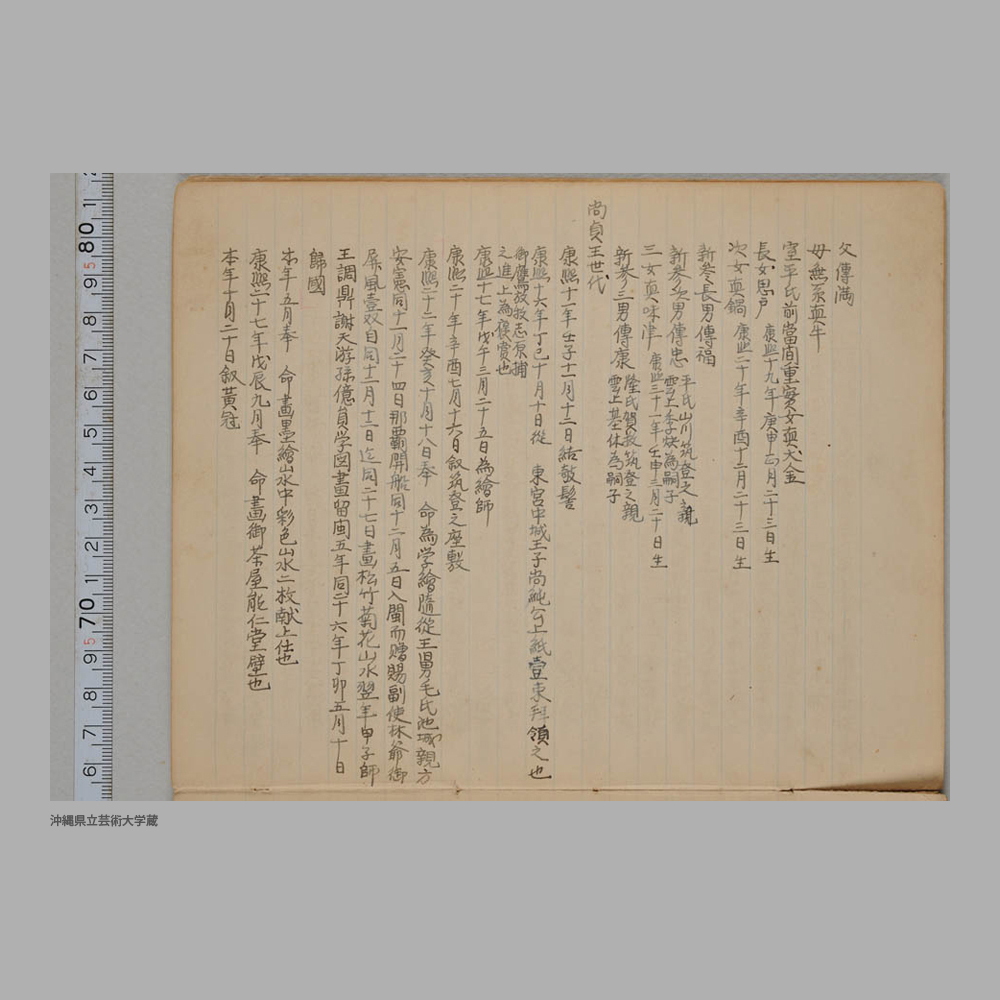 父傳滿
母無系真牛
室平氏前當間重實女真犬金
長女思戸 康熙十九年庚申二月二十三日生
次女真鍋 康熙二十年辛酉十二月二十三日生
新參長男傳福
新參次男傳忠 平氏山川筑登之親雲上季休為嗣子
三女真味津 康熙三十一年壬申三月二十日生
新參三男傳康 隆氏賀数筑登之親雲上基休為嗣子
尚貞王世代
康熙十一年壬子十一月十二日結敧髻
康熙十六年丁巳十月十日從 東宮中城王子尚純公上紙壹束拜領之也
御鷹放教志原捕之進上為褒賞也
康熙十七年戊午三月二十五日為繪師
康熙二十年辛酉七月十六日叙筑登之座敷
康熙二十二年癸亥十月十八日奉 命為学繪隨從王舅毛氏池城親方
安憲同十一月二十四日那霸開船同十二月五日入閩而贈賜副使林爺御
屏風壹双自同十二月十二日迄同二十七日畫松竹菊花山水翌年甲子師
王調鼎謝天游孫億貞学図畫留閩五年同二十六年丁卯五月十日
歸國
本年五月奉 命畫墨繪山水中彩色山水二枚献上仕也
康熙二十七年戊辰九月奉 命畫御茶屋能仁堂壁也
本年十月二十日叙黃冠
沖縄県立芸術大学蔵